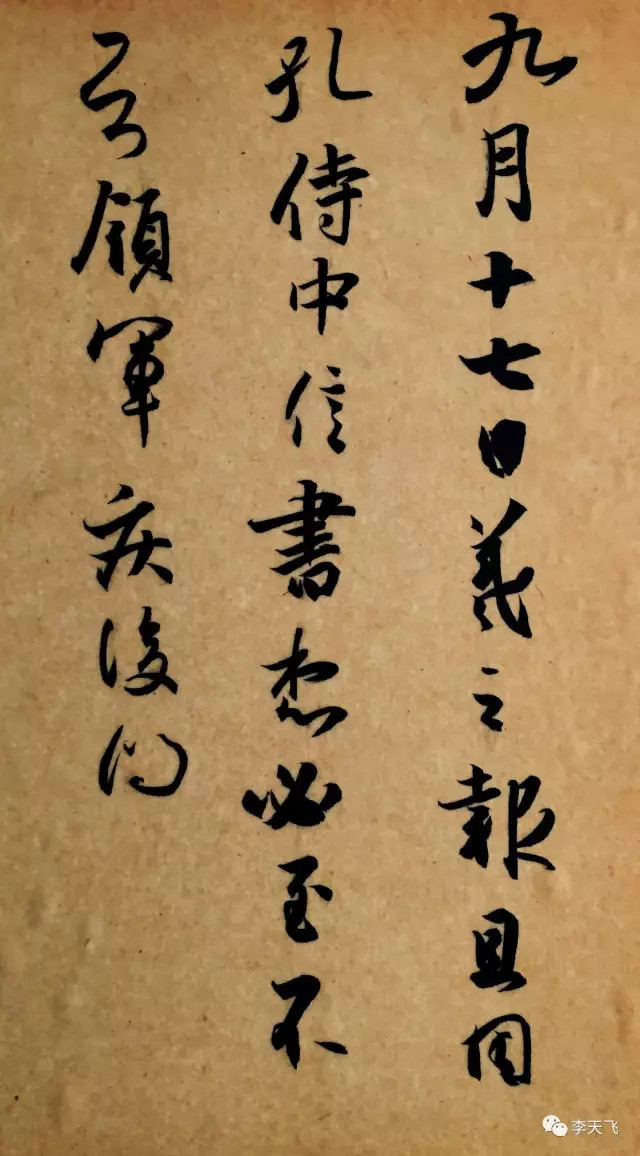 九月十七日羲之報且因
孔侍中信書想必至不
知領軍疾後問
李天飞